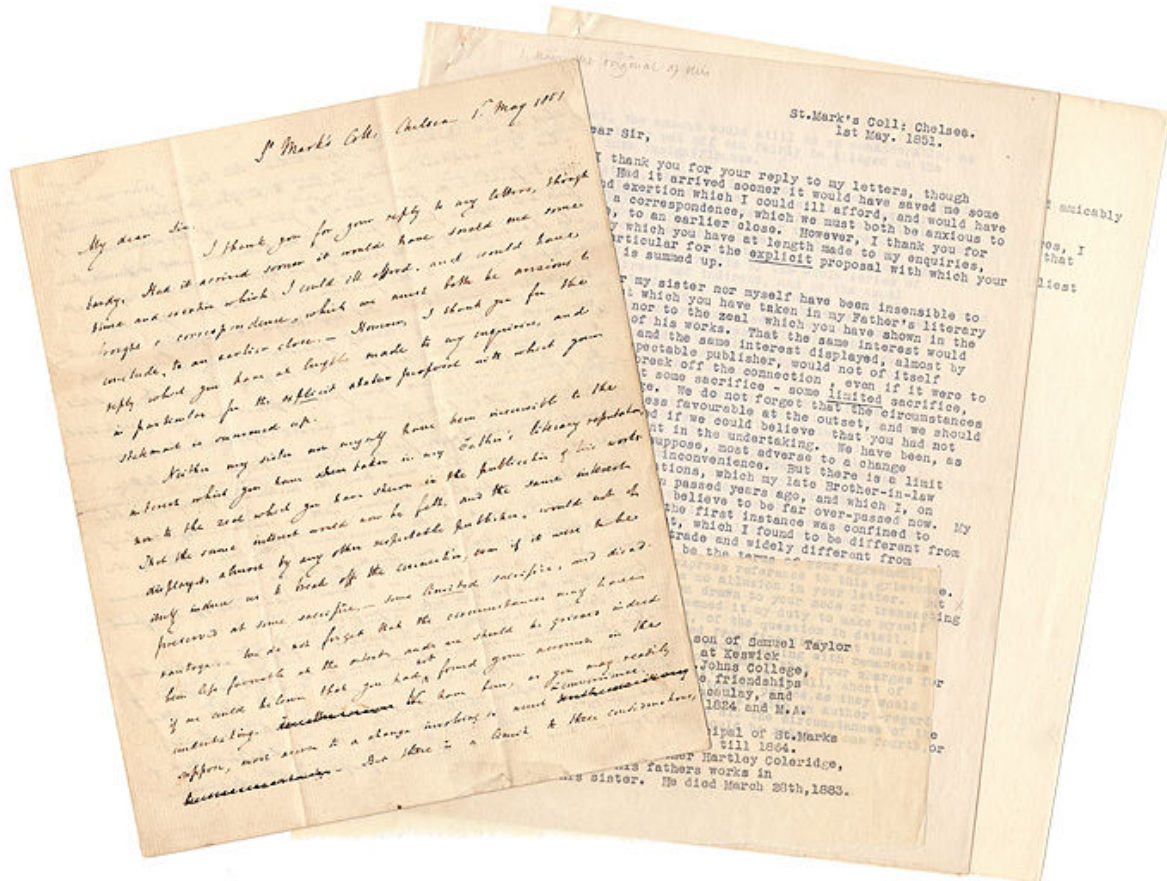 St Mark's Coll, Chelsea 1st May 1851
My dear Sir,
I thank you for your reply to my letters, though
tardy. Had it arrived sooner it would have saved me some
time and exertion which I could ill afford, and would have
brought a correspondence, which we must both be anxious to
conclude, to an earlier close. — However, I thank you for the
reply which you have at length made to my enquiries, and
in particular for the explicit proposal with which your
statement is summed up.
Neither my sister nor myself have been insensible to the
interest which you have taken in my Father's literary reputation,
nor to the zeal which you have shewn in the publication of his works
That the same interest would now be felt, and the same interest
displayed, almost by any other respectable publisher, would not of
itself induce us to break off the connection, even if it were to be
preserved at some sacrifice, — some limited sacrifice, and disad-
vantage. We do not forget that the circumstances may have
been less favorable at the outset, and we should be grieved indeed
if we could believe that you had not found your account in the
undertaking. We have been, as you may readily
suppose, most averse to a change involving so much inconvenience.
But there is a limit to these considerations,
St.Mark's Coll: Chelsea.
1st May. 1851.
ear Sir,
I thank you for your reply to my letters, though
Had it arrived sooner it would have saved me some
d exertion which I could ill afford, and would have
a correspondence, which we must both be anxious to
, to an earlier close. However, I thank you for
y which you have at length made to my enquiries,
rticular for the explicit proposal with which your
is summed up.
r my sister nor myself have been insensible to
t which you have taken in my Father's literary
nor to the zeal which you have shewn in the
of his works. That the same interest would
and the same interest displayed, almost by
pectable publisher, would not of itself
break off the connection, even if it were to
t some sacrifice - some limited sacrifice,
ge. We do not forget that the circumstances
ess favourable at the outset, and we should
d if we could believe that you had not
nt in the undertaking. We have been, as
suppose, most adverse to a change
inconvenience. But there is a limit
ations, which my late Brother-in-law
n passed years ago, and which I, on
believe to be far over-passed now. My
the first instance was confined to
t, which I found to be different from
trade and widely different from
be the terms of your agreement.
son of Samuel Taylor
at Keswick
.Johns College,
e friendships
caulay, and
1824 and M.A.
cipal of St.Marks
till 1864.
her Hartley Coleridge,
his fathers works in
his sister. He died March 28th,1883.
amicably
es, I
that
liest